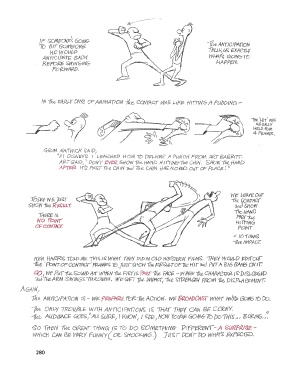 IF SOMEONE'S GOING
TO HIT SOMEONE
HE WOULD
ANTICIPATE BACK
BEFORE SWINGING
FORWARD.
- THE ANTICIPATION
TELLS US EXACTLY
WHAT'S GOING TO
HAPPEN.
IN THE EARLY ONE OF ANIMATION THE CONTACT WAS LIKE HITTING A PUDDING -
THE HIT WAS
USUALLY
HELD FOR
A
GRIM NATWICK SAID,
"AT DISNEY'S I LEARNED HOW TO DELIVER A PUNCH FROM ART BABBITT.
ART SAID, 'DON'T EVER SHOW THE HAND HITTING THE CHIN. SHOW THE HAND
AFTER IT'S PAST THE CHIN AND THE CHIN HAS MOVED OUT OF PLACE.'"
TODAY WE JUST
SHOW THE RESULT.
THERE IS
NO POINT
OF CONTACT
WE LEAVE OUT
THE CONTACT
AND SHOW
THE HAND
PAST THE
HITTING
POINT
= 10 TIMES
THE IMPACT.
KEN HARRIS TOLD ME THIS IS WHAT THEY DID IN OLD WESTERN FILMS. THEY WOULD EDIT OUT
THE 'POINT OF CONTACT' FRAMES & JUST SHOW THE RESULT OF THE HIT AND PUT A BIG BANG ON IT.
SO, WE PUT THE SOUND AT WHEN THE FIST IS PAST THE FACE - WHEN THE CHARACTER IS DISLODGED
AND THE ARM SWINGS THROUGH. WE GET THE IMPACT, THE STRENGTH FROM THE DISPLACEMENT.
AGAIN,
THE ANTICIPATION IS - WE PREPARE FOR THE ACTION. WE BROADCAST WHAT WE'RE GOING TO DO.
THE ONLY TROUBLE WITH ANTICIPATIONS IS THAT THEY CAN BE CORNY.
THE AUDIENCE GOES, 'AH SURE, I KNOW, I SEE, NOW YOU'RE GOING TO DO THIS... BORING...'
SO THEN THE GREAT THING IS TO DO SOMETHING DIFFERENT - A SURPRISE -
WHICH CAN BE VERY FUNNY (OR SHOCKING). JUST DON'T DO WHAT'S EXPECTED.
280